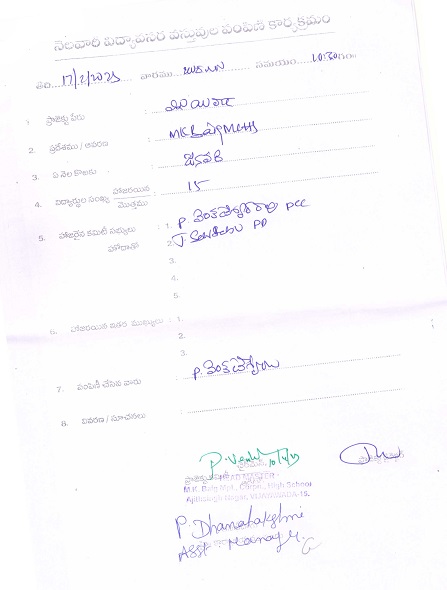 నెలవారి విద్యావసర వస్తువుల పంపిణీ కార్యక్రమం
తేది: 17/2/2023 వారము సమయం 10:30
1. ప్రాజెక్టు పేరు :
2. ప్రదేశము / ఆవరణ : MK Baig MCHS
3. ఏ నెల కొఱకు : జనవరి
4. విద్యార్థుల సంఖ్య హాజరయిన / మొత్తము : 15
5. హాజరైన కమిటీ సభ్యులు : 1. P. వెంకటేశ్వర PCC
హోదాతో 2. J PD
3.
4.
5.
6. హాజరయిన ఇతర ముఖ్యులు : 1.
2.
3.
7. పంపిణీ చేసిన వారు : P. వెంకటేశ్వర
8. వివరణ / సూచనలు :
P. Venk
HEAD MASTER
M.K. Baig Mpl. Corpn. High School
Ajithsingh Nagar, VIJAYAWADA-15.
P. Dhanalakshmi
Asst. Manager